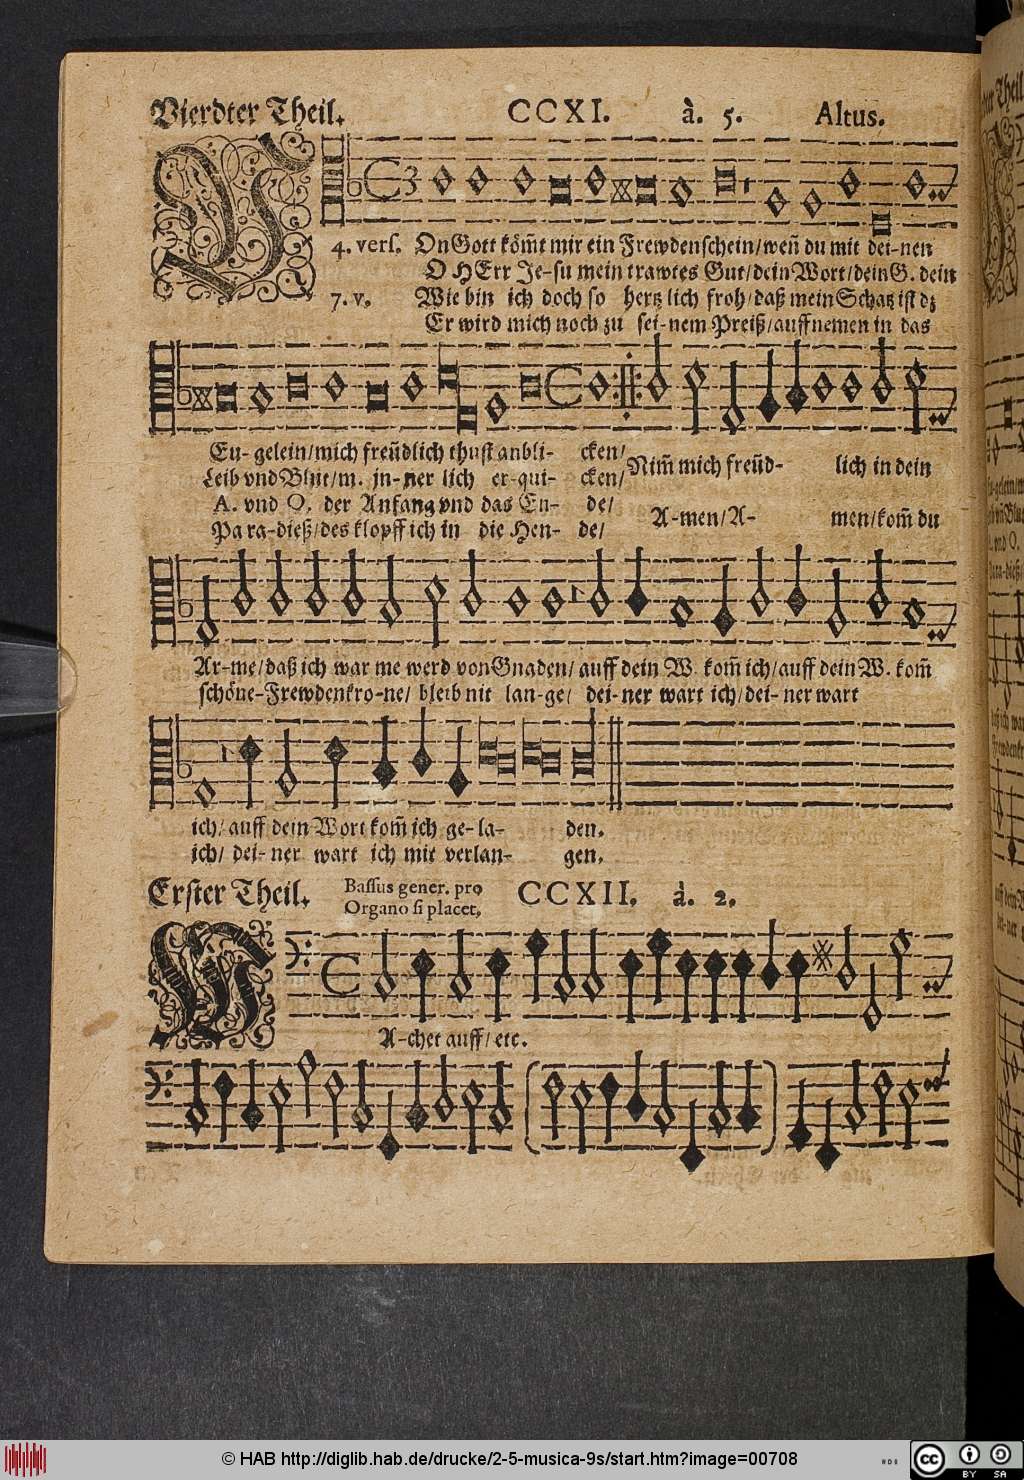 Vierdter Theil. CCXI. à. 5. Altus.
V
4. vers. On Gott köm̃t mir ein Frewdenschein/ weñ du mit dei-nen
O HErr Je-su mein trawtes Gut/ dein Wort/ dein G. dein
7. v. Wie bin ich doch so hertz lich froh/ daß mein Schatz ist dz
Er wird mich noch zu sei-nem Preiß/ auffnemen in das
Eu- gelein/ mich freũdlich thust anbli- cken/
Leib vnd Blut/ m. in-ner lich er-qui- cken/
Nim̃ mich freũd- lich in dein
A. vnd O. der Anfang vnd das En- de/
Pa ra-dieß/ des klopff ich in die Hen- de/
A-men/ A- men/ kom̃ du
Ar-me/ daß ich war me werd von Gnaden/ auff dein W. kom̃ ich/ auff dein W. kom̃
schöne-Frewdenkro-ne/ bleib nit lan-ge/ dei-ner wart ich/ dei-ner wart
ich/ auff dein Wort kom̃ ich ge-la- den.
ich/ dei-ner wart ich mit verlan- gen.
Erster Theil. Bassus gener. pro Organo si placet. CCXII. à. 2.
W
A-chet auff/ etc.
© HAB http://diglib.hab.de/drucke/2-5-musica-9s/start.htm?image=00708
cc BY SA